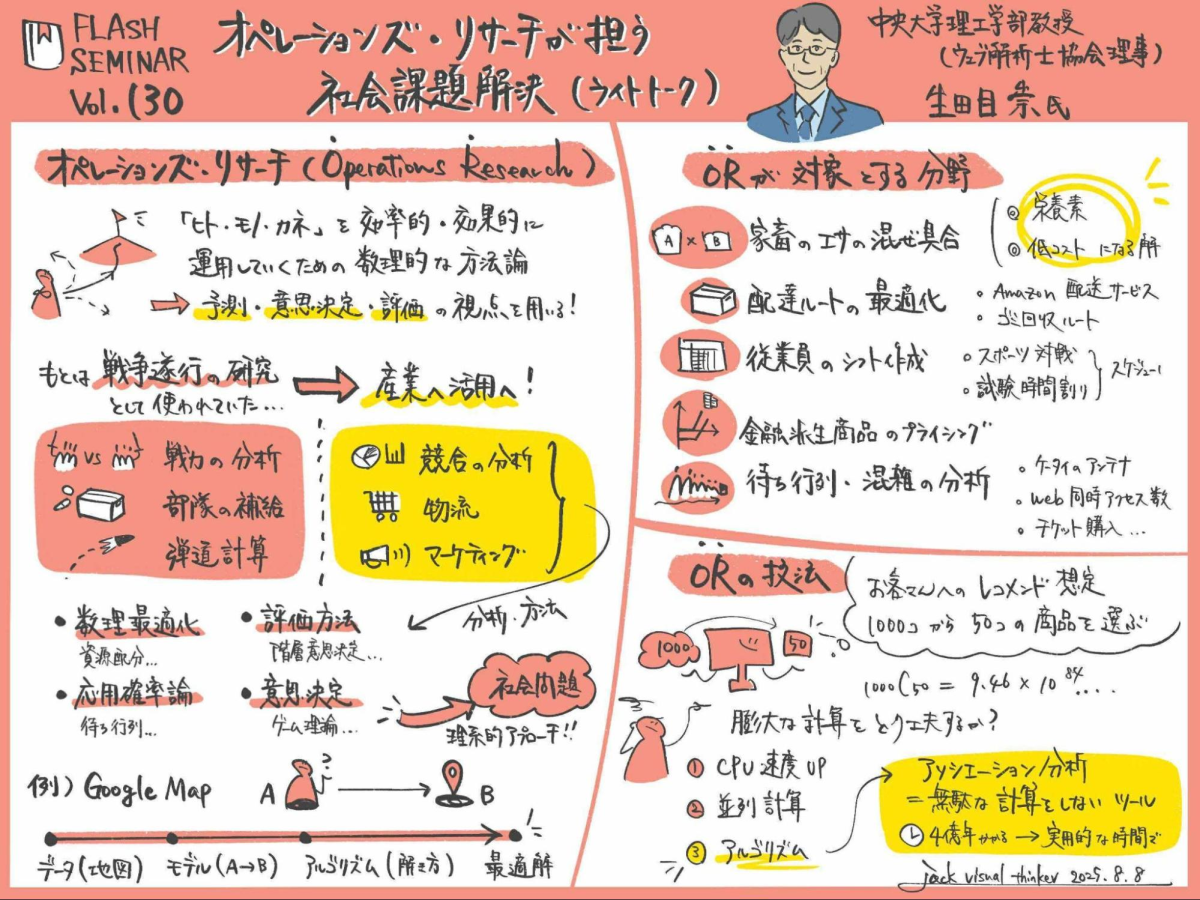 FLASH
SEMINAR
Vol.130
オペレーションズ・リサーチが担う
社会課題解決（ライトトーク）
中央大学理工学部教授
（ウェブ解析士協会理事）
生田目 崇 氏
オペレーションズ・リサーチ（Operations Research）
「ヒト・モノ・カネ」を効率的・効果的に
運用していくための数理的な方法論
予測・意思決定・評価の視点を用いる！
もとは戦争遂行の研究
として使われていた…
産業へ活用へ！
vs 戦力の分析
部隊の補給
弾道計算
競合の分析
物流
マーケティング
分析・方法
・数理最適化
資源配分…
・評価方法
階層意思決定…
・応用確率論
待ち行列…
・意思決定
ゲーム理論…
社会問題
理系的アプローチ!!
例）Google Map
A ? B
データ（地図）
モデル（A→B）
アルゴリズム（解き方）
最適解
ORが対象とする分野
A × B 家畜のエサの混ぜ具合
◎ 栄養素
◎ 低コストになる解
配達ルートの最適化
・Amazon 配送サービス
・ゴミ回収ルート
従業員のシフト作成
・スポーツ対戦
・試験時間割り
スケジュール
金融派生商品のプライシング
待ち行列・混雑の分析
・ケータイのアンテナ
・Web同時アクセス数
・チケット購入…
ORの技法
お客さんへのレコメンド想定
1000コから50コの商品を選ぶ
1000
50
1000C50 = 9.46 × 10 84 ....
膨大な計算をどう工夫するか？
① CPU速度UP
② 並列計算
③ アルゴリズム
アソシエーション分析
= 無駄な計算をしないツール
4億年かかる → 実用的な時間で
jack visual thinker 2025.8.8